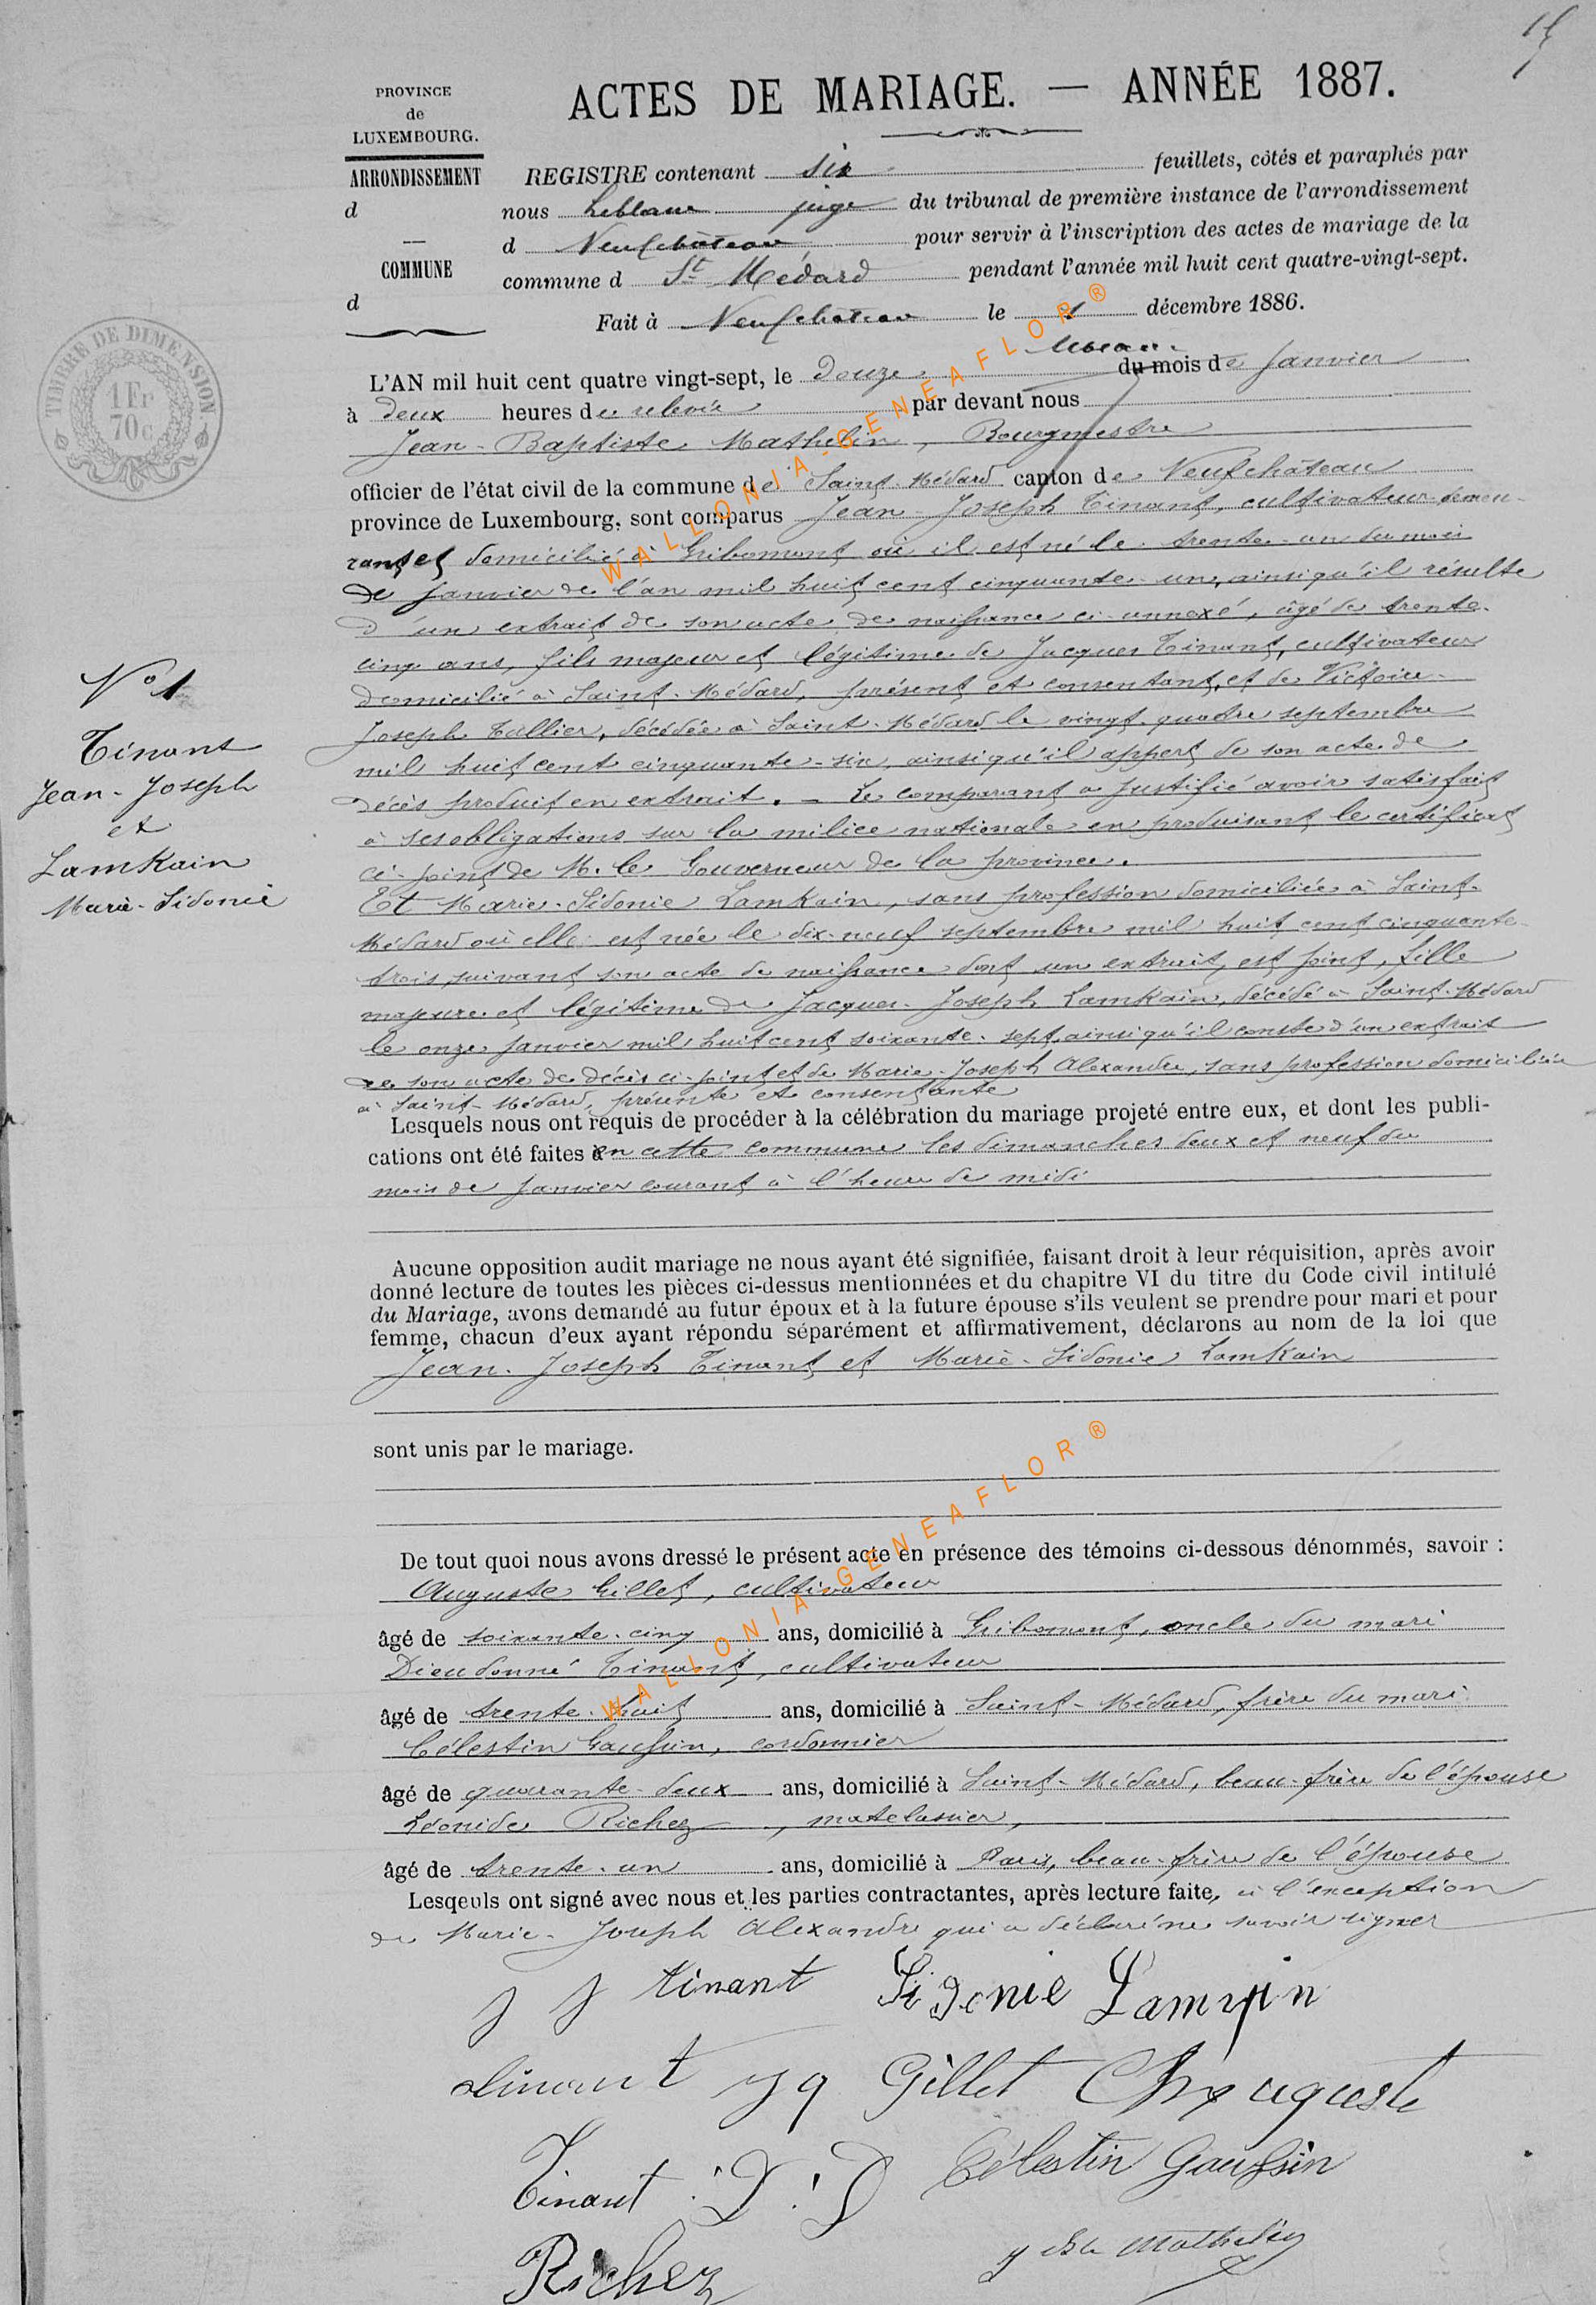 15
PROVINCE
de
LUXEMBOURG.
ARRONDISSEMENT
d
COMMUNE
d
TIMBRE DE DIMENSION
1 Fr
70c
ACTES DE MARIAGE. — ANNÉE 1887.
REGISTRE contenant six feuillets, côtés et paraphés par
nous Leblanc juge du tribunal de première instance de l'arrondissement
d Neufchâteau pour servir à l'inscription des actes de mariage de la
commune d St Médard pendant l'année mil huit cent quatre-vingt-sept.
Fait à Neufchateau le 1 décembre 1886.
L'AN mil huit cent quatre vingt-sept, le douze du mois de Janvier
à deux heures du relevée par devant nous
Jean-Baptiste Mathelin, Bourgmestre
officier de l'état civil de la commune de Saint-Médard canton de Neufchâteau
province de Luxembourg, sont comparus Jean-Joseph Tinant, cultivateur demeu-
rant et domicilié à Gribomont où il est né le trente-un du mois
de Janvier de l'an mil huit cent cinquante-un, ainsi qu'il résulte
d'un extrait de son acte de naissance ci-annexé, âgé de trente-
cinq ans, fils majeur et légitime de Jacques Tinant, cultivateur
domicilié à Saint-Médard, présent et consentant, et de Victoire-
Joseph Tallier, décédée à Saint-Médard le vingt-quatre septembre
mil huit cent cinquante-six, ainsi qu'il appert de son acte de
décès produit en extrait. — Le comparant a justifié avoir satisfait
à ses obligations sur la milice nationale en produisant le certificat
ci-joint de M. le Gouverneur de la province.
Et Marie-Sidonie Lamkain, sans profession domiciliée à Saint-
Médard où elle est née le dix-neuf septembre mil huit cent cinquante-
trois, suivant son acte de naissance dont un extrait est joint, fille
majeure et légitime de Jacques-Joseph Lamkain, décédé à Saint-Médard
le onze janvier mil huit cent soixante-sept, ainsi qu'il conste d'un extrait
de son acte de décès ci-joint et de Marie-Joseph Alexandre, sans profession domiciliée
à Saint-Médard, présente et consentante
Lesquels nous ont requis de procéder à la célébration du mariage projeté entre eux, et dont les publi-
cations ont été faites en cette commune les dimanches deux et neuf du
mois de Janvier courant à l'heure de midi
Aucune opposition audit mariage ne nous ayant été signifiée, faisant droit à leur réquisition, après avoir
donné lecture de toutes les pièces ci-dessus mentionnées et du chapitre VI du titre du Code civil intitulé
du Mariage, avons demandé au futur époux et à la future épouse s'ils veulent se prendre pour mari et pour
femme, chacun d'eux ayant répondu séparément et affirmativement, déclarons au nom de la loi que
Jean-Joseph Tinant et Marie-Sidonie Lamkain
sont unis par le mariage.
De tout quoi nous avons dressé le présent acte en présence des témoins ci-dessous dénommés, savoir :
Auguste Gillet, cultivateur
âgé de soixante-cinq ans, domicilié à Gribomont, oncle du mari
Dieudonné Tinant, cultivateur
âgé de trente-huit ans, domicilié à Saint-Médard, frère du mari
Célestin Gaussin, cordonnier
âgé de quarante-deux ans, domicilié à Saint-Médard, beau-frère de l'épouse
Léonide Richez, matelassier,
âgé de trente-un ans, domicilié à Paris, beau-frère de l'épouse
Lesqeuls ont signé avec nous et les parties contractantes, après lecture faite, à l'exception
de Marie-Joseph Alexandre qui a déclaré ne savoir signer
J J tinant Sidonie Lamquin
tinant J q Gillet Auguste
Tinant D.D Célestin Gaussin
Richez J Bte Mathelin
N° 1
Tinant
Jean-Joseph
et
Lamkain
Marie-Sidonie
WALLONIA-GENEAFLOR®
WALLONIA-GENEAFLOR®